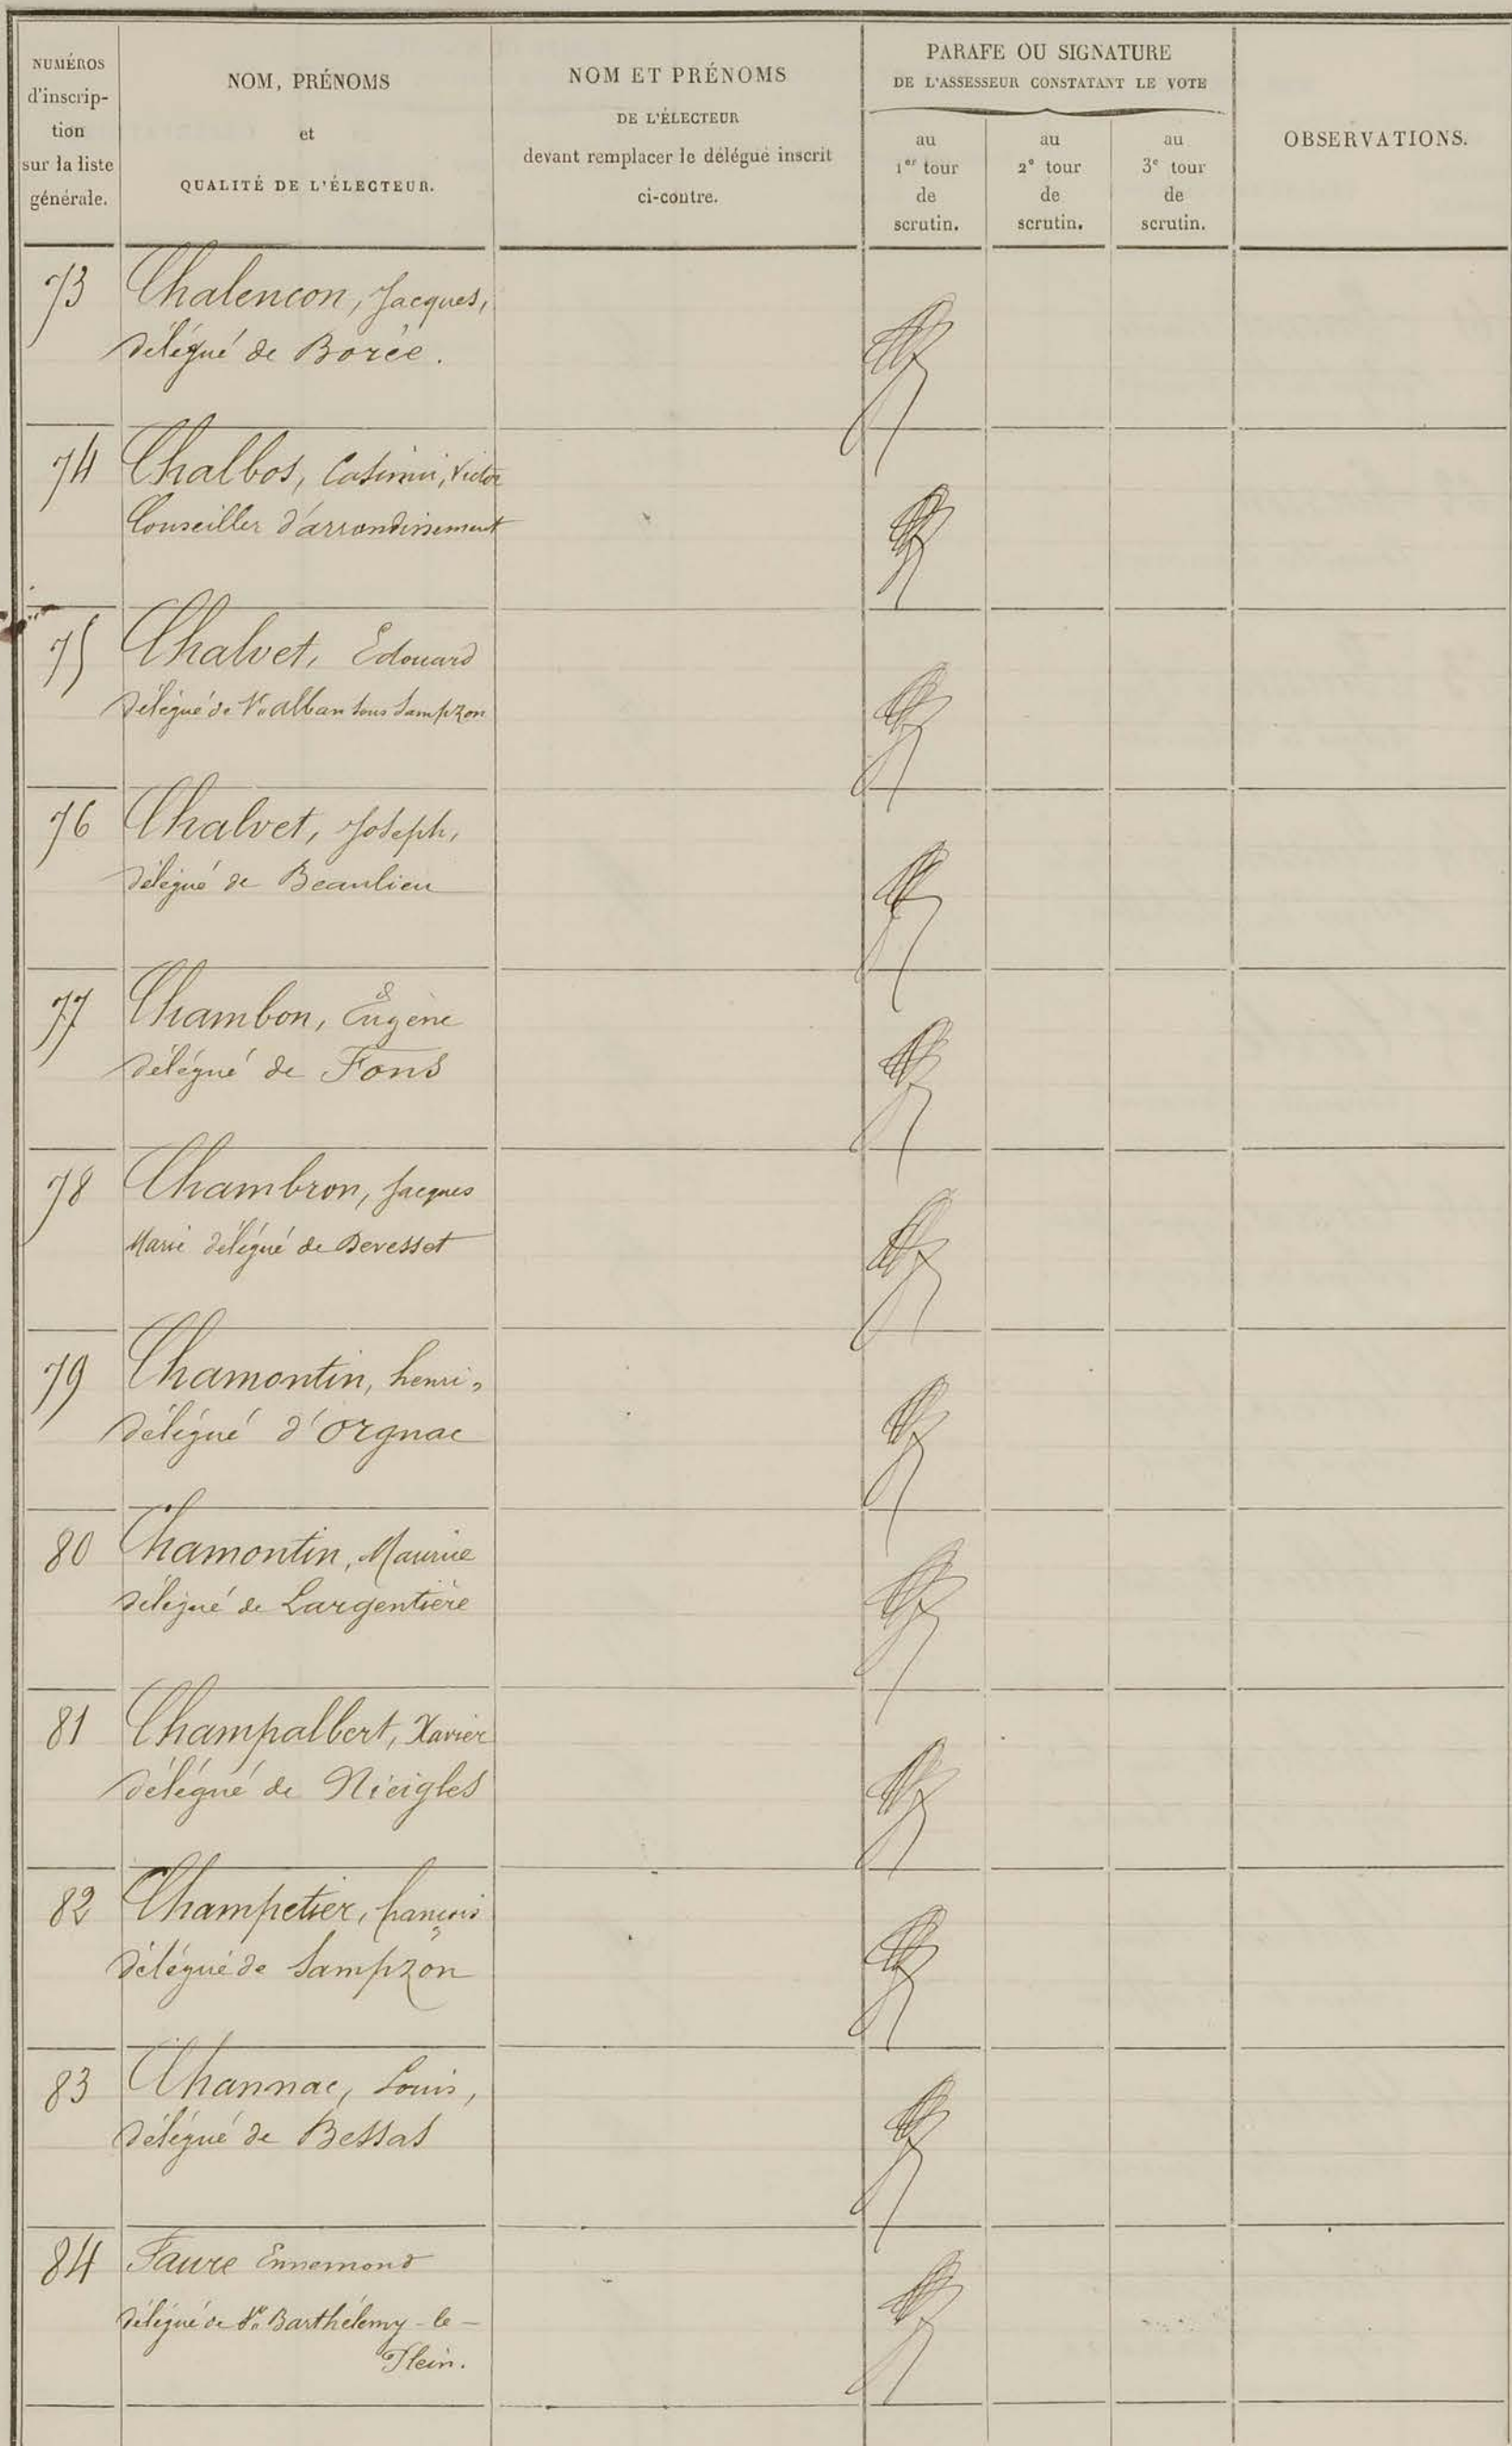 NUMÉROS
d'inscrip-
tion
sur la liste
générale.
NOM, PRÉNOMS
et
QUALITÉ DE L'ÉLECTEUR.
NOM ET PRÉNOMS
DE L'ÉLECTEUR
devant remplacer le délégué inscrit
ci-contre.
PARAFE OU SIGNATURE
DE L'ASSESSEUR CONSTATANT LE VOTE
au
1er tour
de
scrutin.
au
2e tour
de
scrutin.
au
3e tour
de
scrutin.
OBSERVATIONS.
73 Chalencon, Jacques,
délégué de Borée.
74 Chalbos, Casimir, Victor
Conseiller d'arrondissement
75 Chalvet, Edouard
délégué de St. Alban sous Sampzon
76 Chalvet, Joseph,
délégué de Beaulieu
77 Chambon, Eugène
délégué de Fons
78 Chambron, Jacques
Marie délégué de Devesset
79 Chamontin, henri,
délégué d'Orgnac
80 Chamontin, Maurice
délégué de Largentière
81 Champalbert, Xavier
délégué de Nieigles
82 Champetier, françois
délégué de Sampzon
83 Channac, Louis,
délégué de Bessas
84 Faure Ennemond
délégué de St. Barthélemy-le-
Plein.